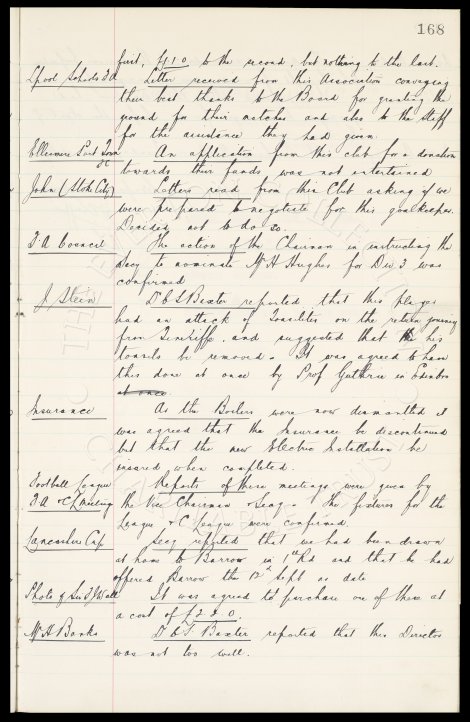 168
first, £1.1.0 to the second, but nothing to the last.
Lpool Schools F.A. Letter received from this Association conveying
their best thanks to the Board for granting the
ground for their matches and also to the staff
for the assistance they had given.
Ellesmere Port Town F.C. An application from this club for a donation
towards their funds was not entertained
John (Stoke City) Letters read from this Club asking if we
were prepared to negotiate for this goalkeeper.
Decided not to do so.
F.A. Council The action of the Chairman in instructing the
Secy to nominate Mr H Hughes for Div. 3 was
confirmed
J Stein Dr C S Baxter reported that this player
had an attack of Tonsilitis on the return journey
from Teneriffe, and suggested that his
tonsils be removed. It was agreed to have
this done at once by Prof Guthrie in Edinboro
at once.
Insurance As the Boilers were now dismantled it
was agreed that the Insurance be discontinued
but that the new Electric Installation be
insured when completed.
Football League Reports of these meetings were given by
F.A. & C.L. Meeting the Vice Chairman & Secy. The fixtures for the
League & C League were confirmed.
Lancashire Cup Secy reported that we had been drawn
at home to Barrow in 1st Rd and that he had
offered Barrow the 12th Sept as date
Photo of Sir F J Wall It was agreed to purchase one of these at
a cost of £2.2.0.
Mr A Banks Dr C S Baxter reported that this Director
was not too well.